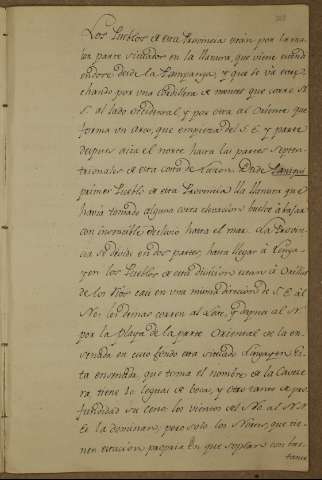 Los Pueblos de esta Provincia estan por la ma-
ior parte situados en la llanura, que viene estend
iendose desde la Pampanga, y que se va estre-
chando por una cordillera de montes que corre N.
S. al lado occidental y por otra al Oriente que
forma un Arco, que empieza del S. E. y parte
despues acia el norte hasta las partes Septen-
trionales de esta costa de Luzon. Desde
primer Pueblo de esta Provincia la llanura que
havia tomado alguna corta elevacion buelve á bajar
con insensible declivio hasta el mar. La Provin-
cia se divide en dos partes; hasta llegar á Linga-
yen los Pueblos de esta division estan á Orillas
de los Rios casi en una misma direccion de S. E. al
No. los demas corren al y al Nr.
por la Playa de la parte Oriental de la en-
senada en cuio fondo esta situado Lingayen. Es-
ta ensenada, que toma el nombre de la Cavece-
ra, tiene 10 leguas de boca, y otro tanto de pro-
fundidad su seno: los vientos del No. al N.
Es. la dominan, pero solo los Nortes, que tie-
nen estacion propria en que soplar con bas-
tante